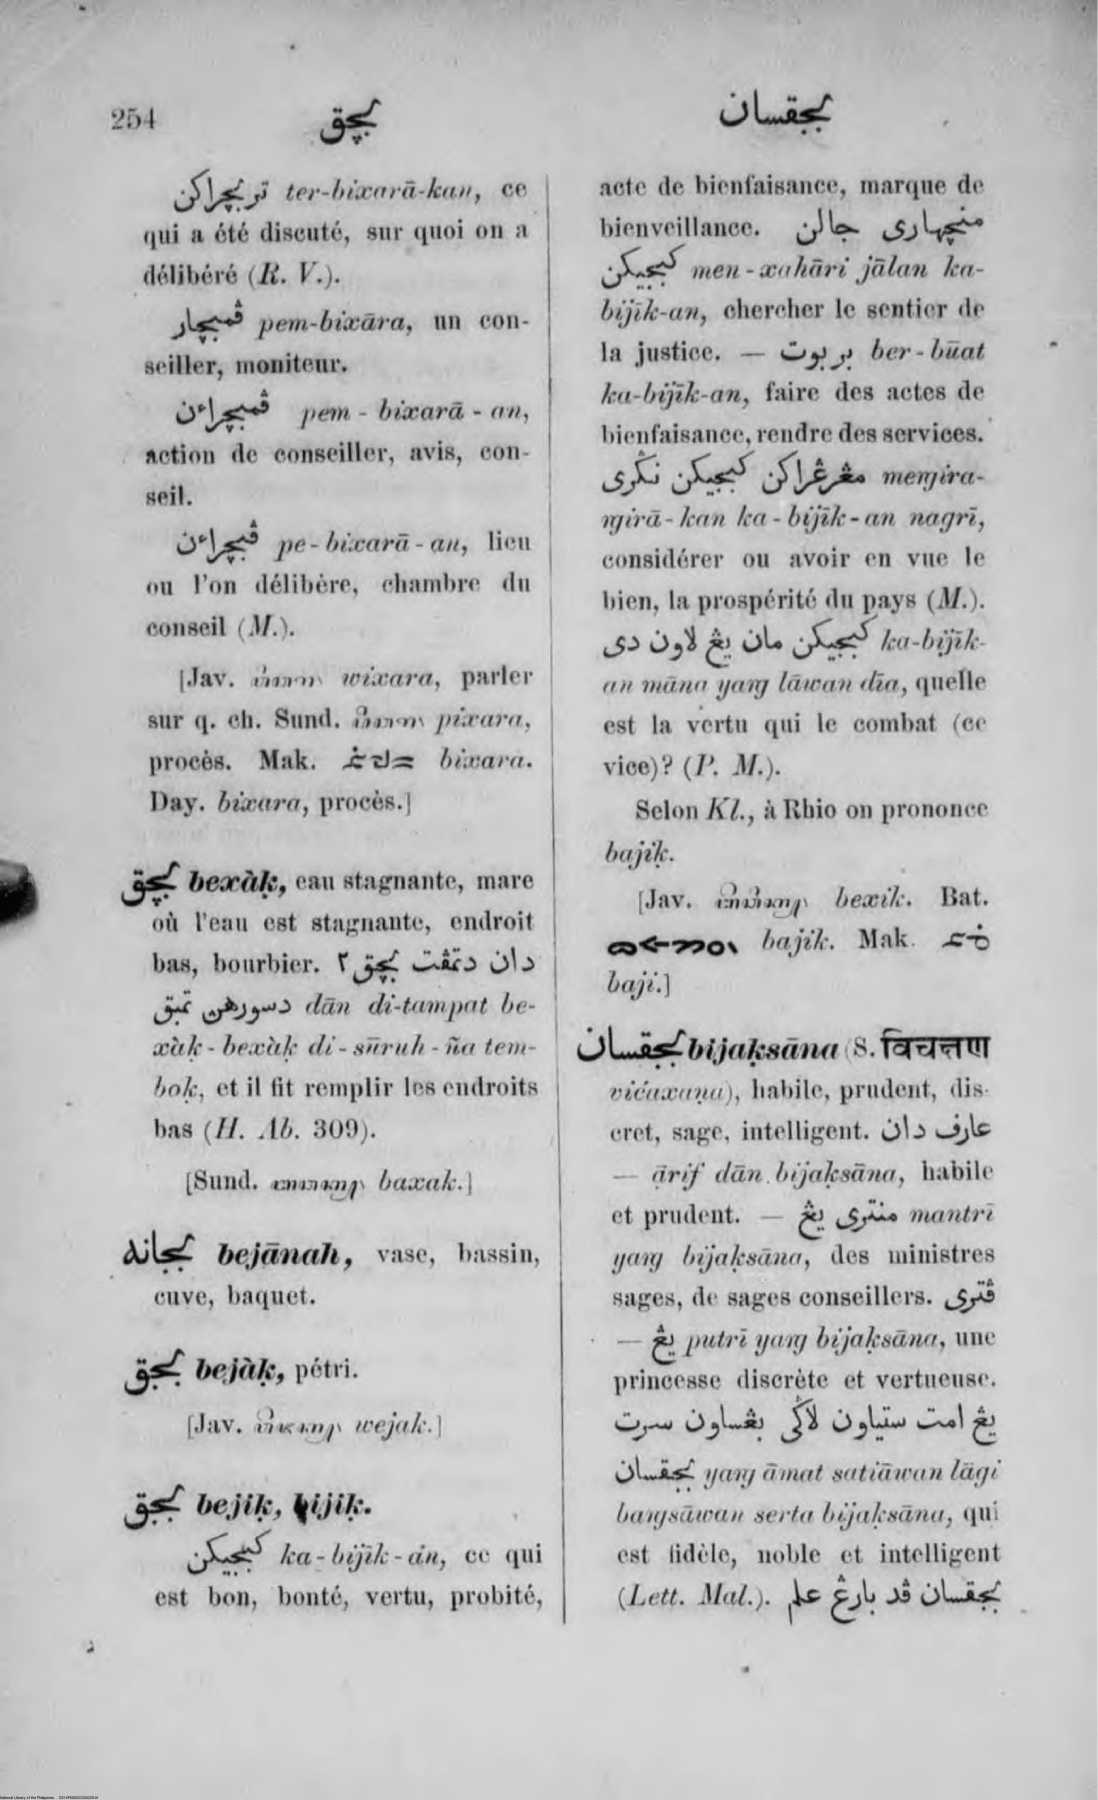 254
بچق
بجقسان
تربچراكن ter-bixarā-kan, ce
qui a été discuté, sur quoi on a
délibéré (R. V.).
ڤمبچار pem-bixāra, un con-
seiller, moniteur.
ڤمبچراءن pem-bixarā-an,
action de conseiller, avis, con-
seil.
ڤبچراءن pe-bixarā-an, lieu
ou l'on délibère, chambre du
conseil (M.).
[Jav. wixara, parler
sur q. ch. Sund. pixara,
procès. Mak. bixara.
Day. bixara, procès.]
بچق bexàḳ, eau stagnante, mare
où l'eau est stagnante, endroit
bas, bourbier. دان دتمڤت بچق٢
دسورهن تمبق dān di-tampat be-
xàk-bexàḳ di-sūruh-ña tem-
boḳ, et il fit remplir les endroits
bas (H. Ab. 309).
[Sund. baxak.]
بجانه bejānah, vase, bassin,
cuve, baquet.
بجق bejàḳ, pétri.
[Jav. wejak.]
بجق bejiḳ, bijiḳ.
كبجيكن ka-bijīk-an, ce qui
est bon, bonté, vertu, probité,
acte de bienfaisance, marque de
bienveillance. منچهاري جالن
كبجيكن men-xahāri jālan ka-
bijīk-an, chercher le sentier de
la justice. — بربوت ber-būat
ka-bijīk-an, faire des actes de
bienfaisance, rendre des services.
مڠرڠراكن كبجيكن نڬري meṃgira-
ṃgirā-kan ka-bijīk-an nagrī,
considérer ou avoir en vue le
bien, la prospérité du pays (M.).
كبجيكن مان يڠ لاون دي ka-bijīk-
an māna yaṃg lāwan dīa, quelle
est la vertu qui le combat (ce
vice)? (P. M.).
Selon Kl., à Rhio on prononce
bajiḳ.
[Jav. bexik. Bat.
bajik. Mak.
baji.]
بجقسان bijaḳsāna (S. विचक्षण
vićaxaṇa), habile, prudent, dis-
cret, sage, intelligent. عارف دان
— ạ̄rif dān bijaḳsāna, habile
et prudent. — منتري يڠ mantrī
yaṃg bijaḳsāna, des ministres
sages, de sages conseillers. ڤتري
— يڠ putrī yaṃg bijaḳsāna, une
princesse discrète et vertueuse.
يڠ امت ستياون لاڬي بڠساون سرت
بجقسان yaṃg āmat satiāwan lāgi
baṃgsāwan serta bijaḳsāna, qui
est fidèle, noble et intelligent
(Lett. Mal.). بجقسان ڤد بارڠ علم